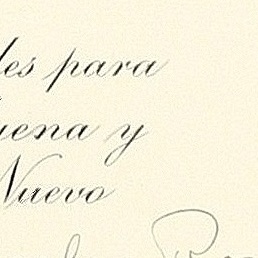 les para
uena y
Nuevo